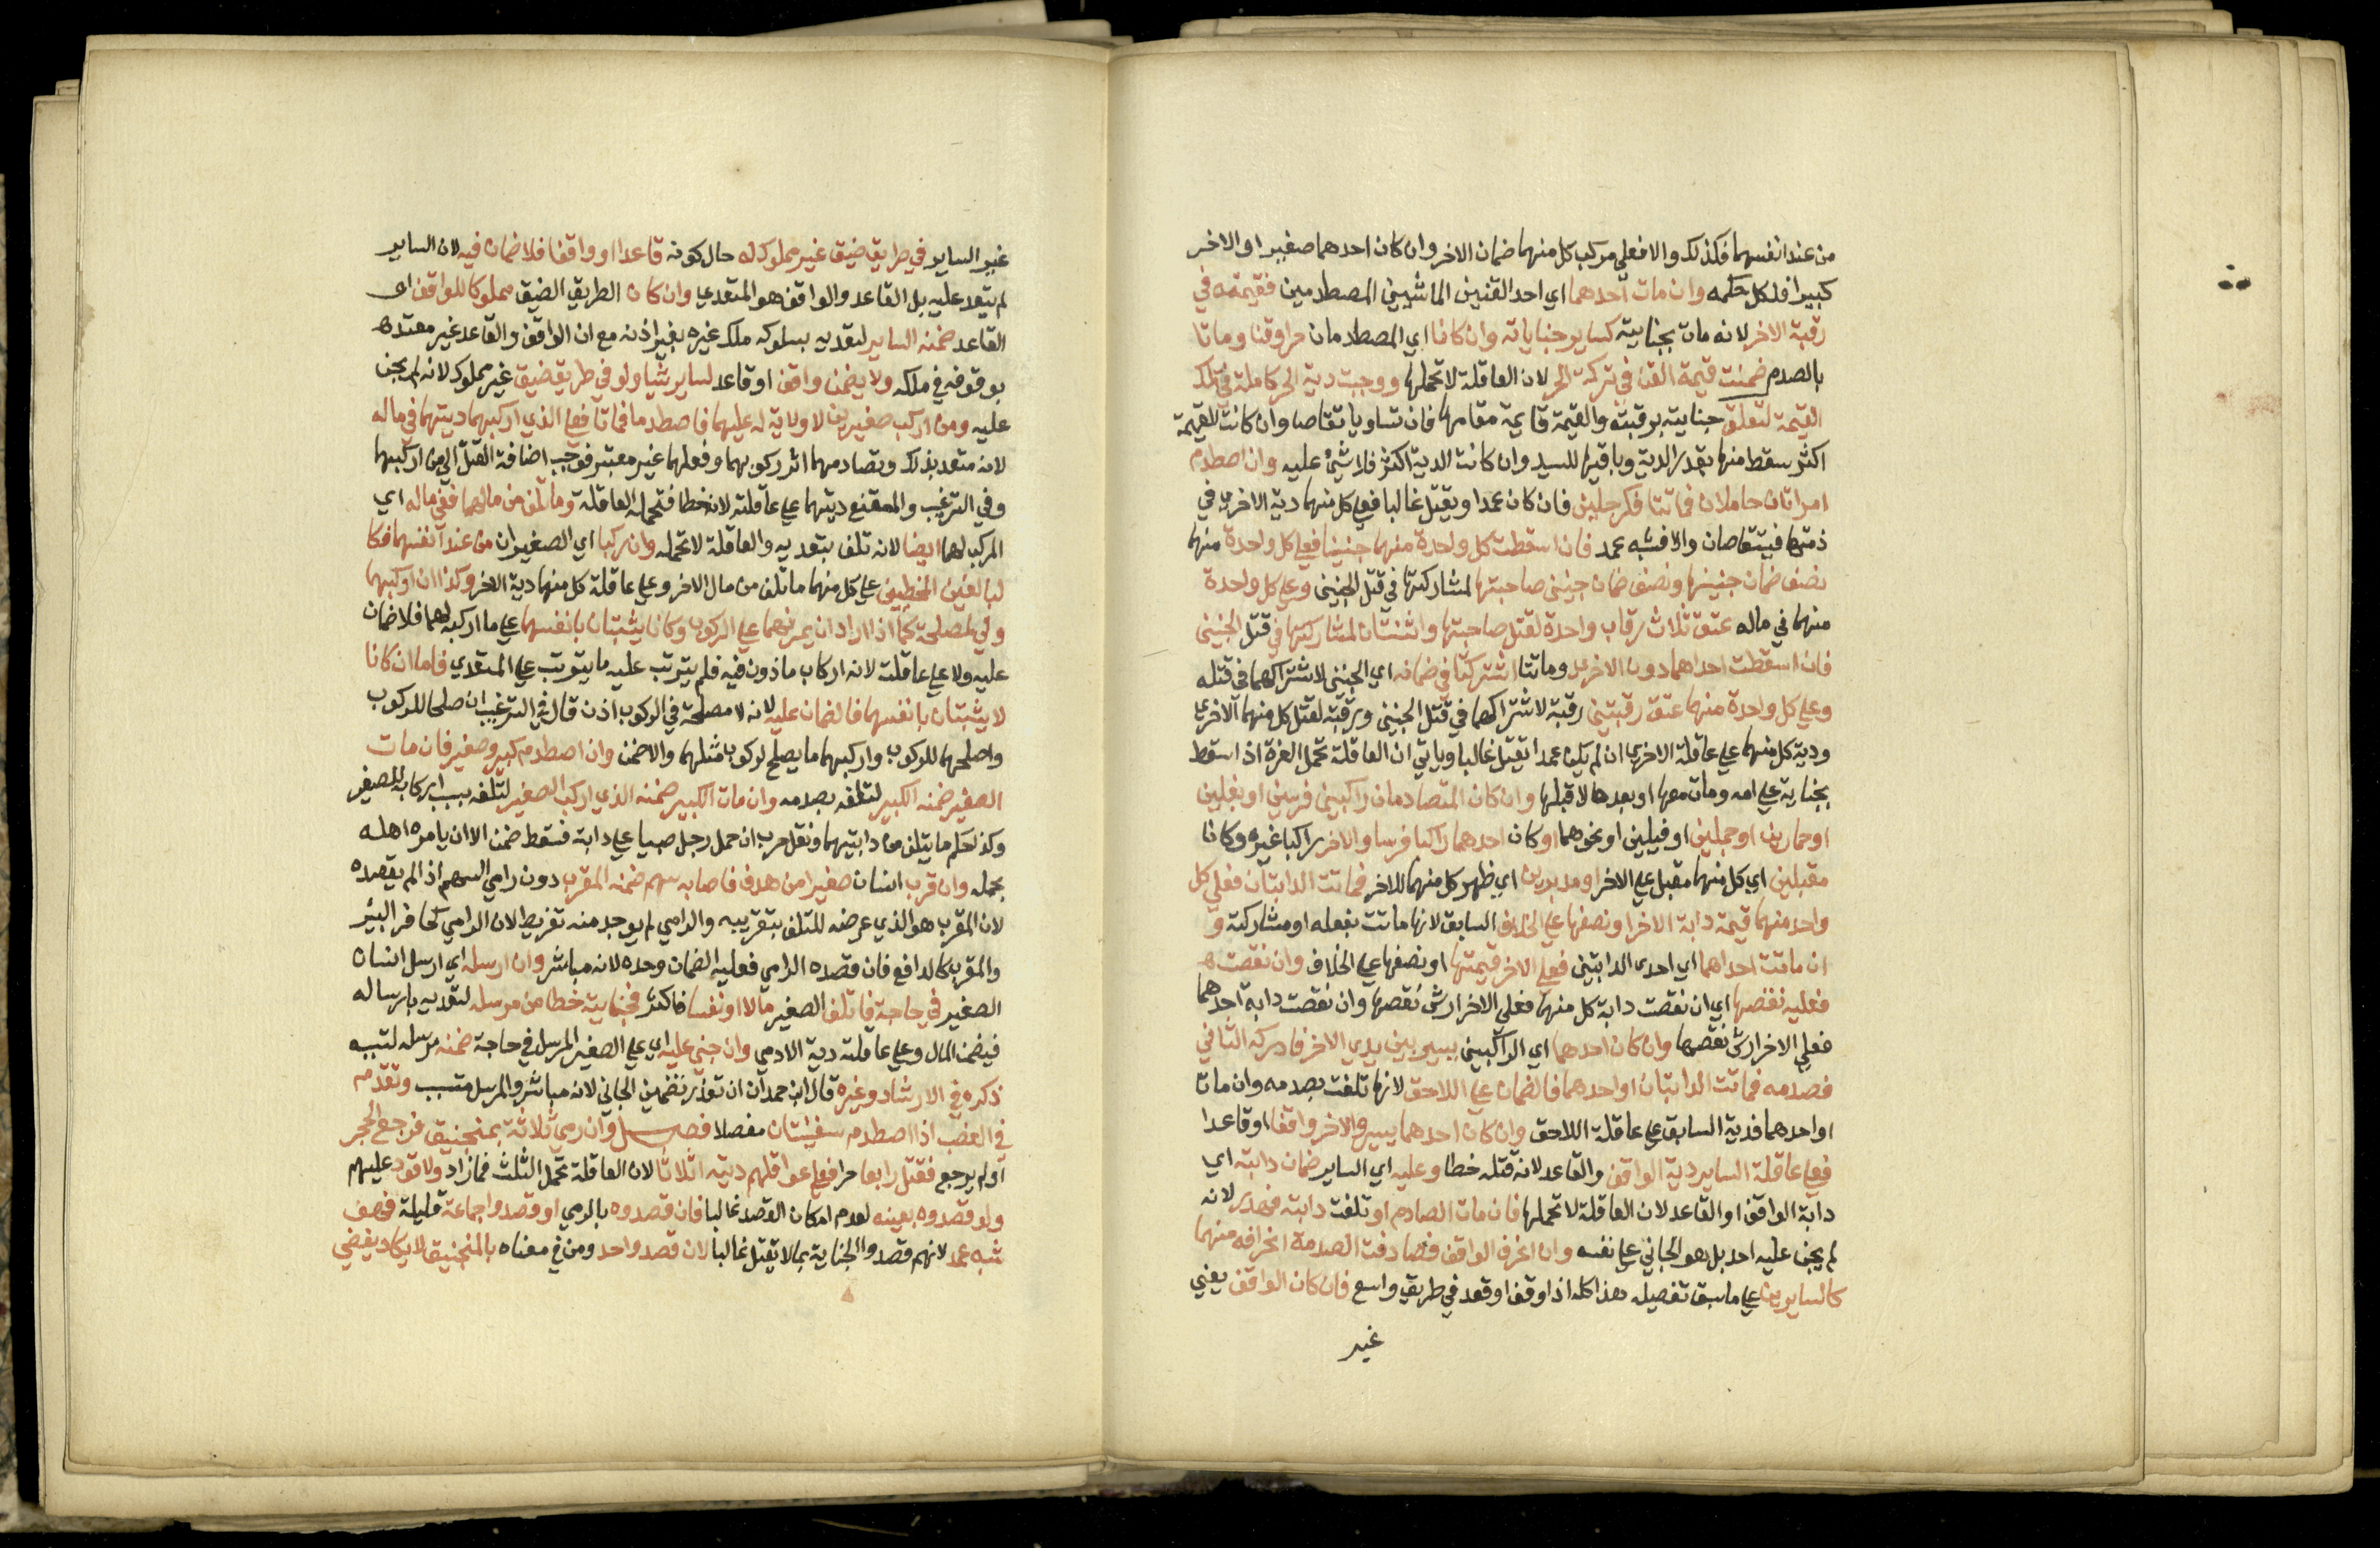 من عند انفسهما فكذلك والا فعلي مركب كل منهما ضمان الاخر وان كان احدهما صغيرا والاخر
كبيرا فلكل حكمه وان مات احدهما اي احد القنين الماشيين المصطدمين فقيمته في
رقبة الاخر لانه مات بجنايته كساير جناياته وان كانا اي المصطدمان حرا وقنا وماتا
بالصدم ضمنت قيمة القن في تركة الحر لان العاقلة لا تحملها ووجبت دية الحر كاملة في تلك
القيمة لتعلق جنايته برقبته والقيمة قايمة مقامها فان تساويا تقاصا وان كانت القيمة
اكثر سقط منها بقدر الدية وباقيها للسيد وان كانت الدية اكثر فلا شئ عليه وان اصطدم
امراتان حاملان فماتتا فكرجلين فان كان عمدا ويقتل غالبا فعلي كل منهما دية الاخري في
ذمتها فيتقاصان والا فشبه عمد فان اسقطت كل واحدة منهما جنينا فعلي كل واحدة منهما
نصف ضمان جنينها ونصف ضمان جنين صاحبتها لمشاركتها في قتل الجنين وعلي كل واحدة
منهما في ماله عتق ثلاث رقاب واحدة لقتل صاحبتها واثنتان لمشاركتها في قتل الجنين
فان اسقطت احداهما دون الاخري وماتتا اشتركتا في ضمانه اي الجنين لاشتراكهما في قتله
وعلي كل واحدة منهما عتق رقبتين رقبة لاشتراكهما في قتل الجنين ورقبة لقتل كل منهما الاخري
ودية كل منهما علي عاقلة الاخري ان لم يكن عمدا يقتل غالبا وياتي ان العاقلة تحمل الغرة اذا سقط
بجناية علي امه ومات معها او بعدها لا قبلها وان كان المتصادمان راكبين فرسين او بغلين
او حمارين او جملين او فيلين او نحوهما او كان احدهما راكبا فرسا والاخر راكبا غيره وكانا
مقبلين اي كل منهما مقبل علي الاخر او مدبرين اي ظهر كل منهما للاخر فماتت الدابتان فعلي كل
واحد منهما قيمة دابة الاخر او نصفها علي الخلاف السابق لانها ماتت بفعله او مشاركته و
ان ماتت احداهما اي احدي الدابتين فعلي الاخر قيمتها او نصفها علي الخلاف وان نقصت
فعليه نقصها اي ان نقصت دابة كل منهما فعلي الاخر ارش نقصها وان نقصت دابة احدهما
فعلي الاخر ارش نقصها وان كان احدهما اي الراكبين يسير بين يدي الاخر فادركه الثاني
فصدمه فماتت الدابتان او احدهما فالضمان علي اللاحق لانها تلفت بصدمه وان ماتا
او احدهما فدية السابق علي عاقلة اللاحق وان كان احدهما يسير والاخر واقفا او قاعدا
فعلي عاقلة الساير دية الواقف والقاعد لانه قتله خطا وعليه اي الساير ضمان دابته اي
دابة الواقف او القاعد لان العاقلة لا تحملها فان مات الصادم او تلفت دابته فهدر لانه
لم يجن عليه احد بل هو الجاني علي نفسه وان انحرف الواقف فصادفت الصدمة انحرافه منهما
كالسايرين علي ما سبق تفصيله هذا كله اذا وقف او قعد في طريق واسع فان كان الواقف يعني
غير
غير الساير في طريق ضيق غير مملوك له حال كونه قاعدا او واقفا فلا ضمان فيه لان الساير
لم يتعد عليه بل القاعد والواقف هو المتعدي وان كان الطريق الضيق مملوكا للواقف او
القاعد ضمنه الساير لتعديه بسلوكه ملك غيره بغير اذنه مع ان الواقف والقاعد غير معتد
بوقوفه في ملكه ولا يضمن واقف او قاعد لساير شيا ولو في طريق ضيق غير مملوك لانه لم يجن
عليه ومن اركب صغيرين لا ولاية له عليهما فاصطدما فماتا فعلي الذي اركبهما ديتهما في ماله
لانه متعد بذلك وتصادمهما اثر ركوبهما وفعلهما غير معتبر فوجب اضافة القتل الي من اركبهما
وفي الترغيب والمقنع ديتهما علي عاقلته لانه خطا فتحمله العاقلة وما تلف من مالهما ففي ماله اي
المركب لهما ايضا لانه تلف بتعديه والعاقلة لا تحمله وان ركبا اي الصغيران من عند انفسهما فكا
لبالغين المخطيين علي كل منهما ما تلف من مال الاخر وعلي عاقلة كل منهما دية الاخر وكذا ان اركبهما
ولي لمصلحة كما اذا اراد ان يمرنهما علي الركوب وكانا يثبتان بانفسهما علي ما اركبه لهما فلا ضمان
عليه ولا علي عاقلته لانه اركاب ماذون فيه فلم يترتب عليه ما يترتب علي المتعدي فاما ان كانا
لا يثبتان بانفسهما فالضمان عليه لانه لا مصلحة في الركوب اذن قال في الترغيب ان صلحا للركوب
واصلحهما للركوب واركبهما ما يصلح لركوب مثلهما والا ضمن وان اصطدم كبير وصغير فان مات
الصغير ضمنه الكبير لتلفه بصدمه وان مات الكبير ضمنه الذي اركب الصغير لتلفه بسبب اركابه للصغير
وكذا حكم ما يتلف من دابتيهما ونقل حرب ان حمل رجل صبيا علي دابة فسقط ضمن الا ان يامره اهله
بحمله وان قرب انسان صغيرا من هدف فاصابه سهم ضمنه المقرب دون رامي السهم اذا لم يقصده
لان المقرب هو الذي عرضه للتلف بتقريبه والرامي لم يوجد منه تفريط لان الرامي كحافر البئر
والمقرب كالدافع فان قصده الرامي فعليه الضمان وحده لانه مباشر وان ارسله اي ارسل انسان
الصغير في حاجة فاتلف الصغير مالا او نفسا فاكثر فجنايته خطا من مرسله لتعديه بارساله
فيضمن المال وعلي عاقلته دية الادمي وان جني عليه اي علي الصغير المرسل في حاجة ضمنه مرسله لتسببه
ذكره في الارشاد وغيره قال ابن حمدان ان تعذر تضمين الجاني لانه مباشر والمرسل متسبب وتقدم
في الغصب اذا اصطدم سفينتان مفصلا فصل وان رمي ثلاثة بمنجنيق فرجع الحجر
او لم يرجع فقتل رابعا حرا فعلي عواقلهم ديته اثلاثا لان العاقلة تحمل الثلث فما زاد ولا قود عليهم
ولو قصدوه بعينه لعدم امكان القصد غالبا فان قصدوه بالرمي او قصدوا جماعة قليلة فهو
شبه عمد لانهم قصدوا الجناية بما لا يقتل غالبا لان قصد واحد ومن في معناه بالمنجنيق لا يكاد يفضي